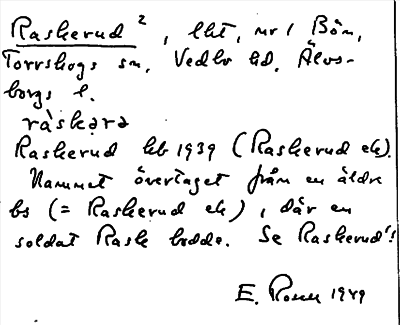 Raskerud ², lht, nr 1 Bön,
Torrskogs sn, Vedbo hd, Älvs-
borgs l.
rås̀kərə
Raskerud kb 1939 (Raskerud ek).
Namnet övertaget från en äldre
bs (= Raskerud ek), där en
soldat Rask bodde. Se Raskerud¹!
E. Rosen 1949